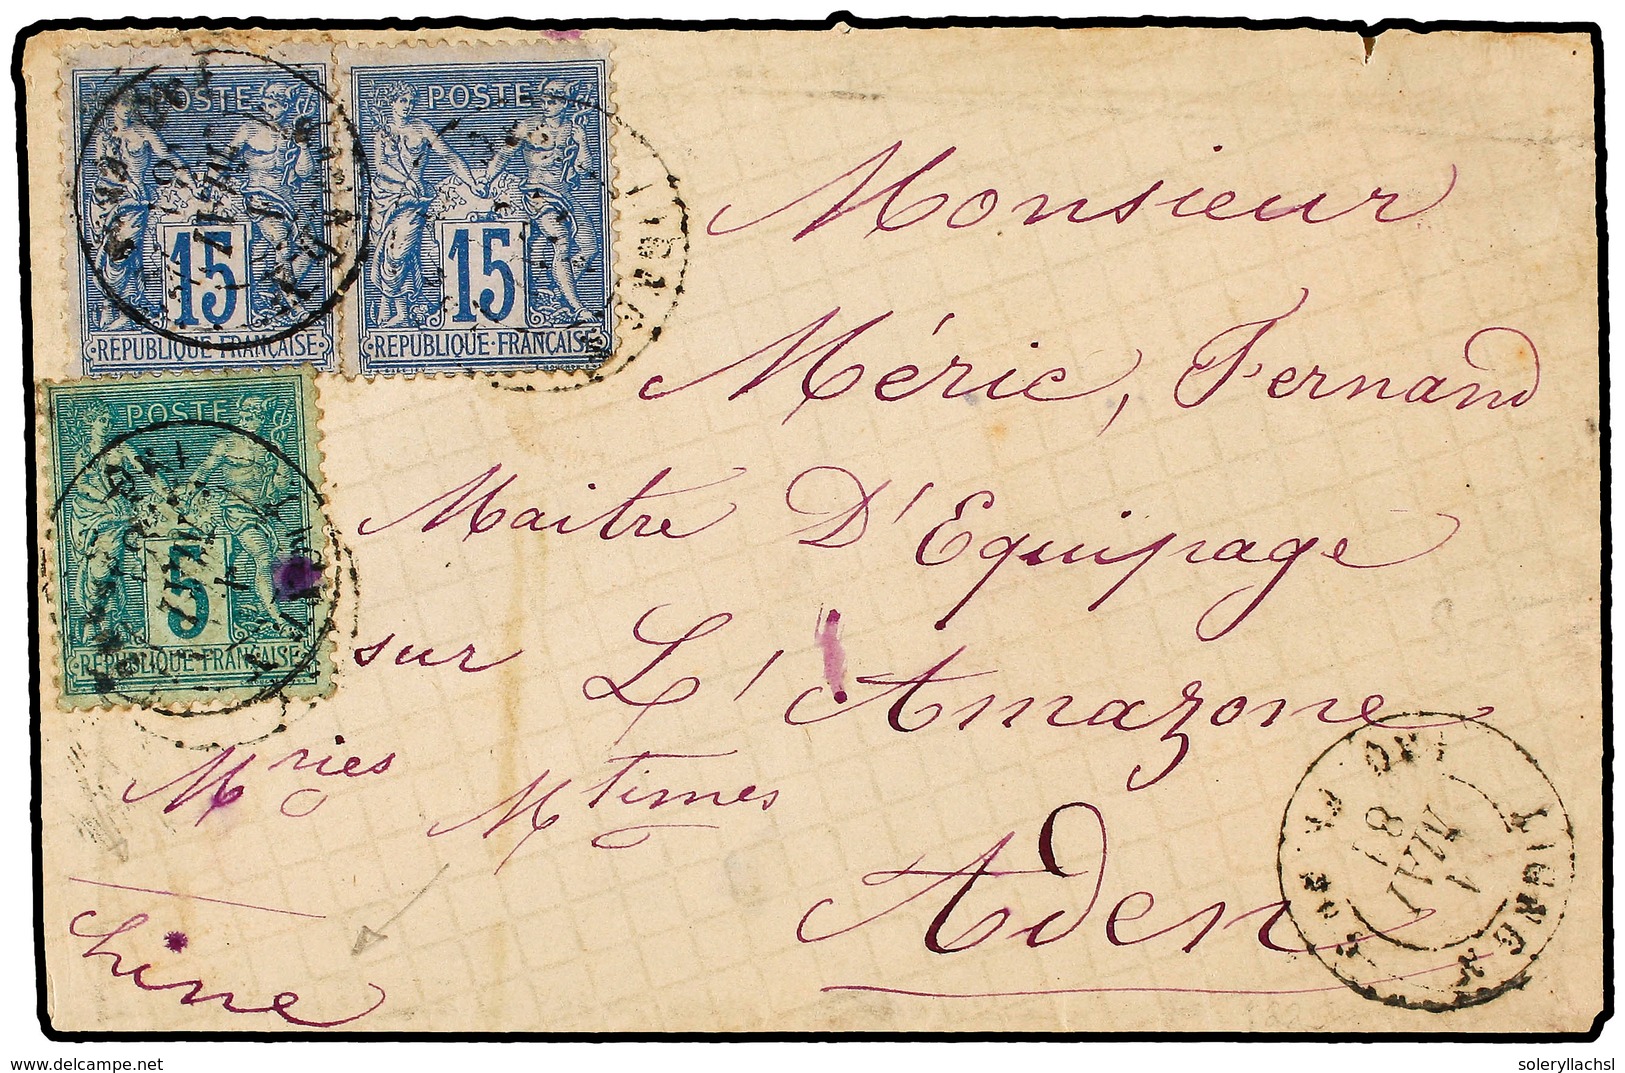 POSTE
15
REPUBLIQUE FRANÇAISE
POSTE
15
REPUBLIQUE FRANÇAISE
POSTE
5
REPUBLIQUE FRANÇAISE
Monsieur
Méric, Fernand
Maitre D'Equipage
sur L'Amazone
Mries Mtimes
Aden
Chine
1
MAI
81
delcampe.net
soleryllachsl